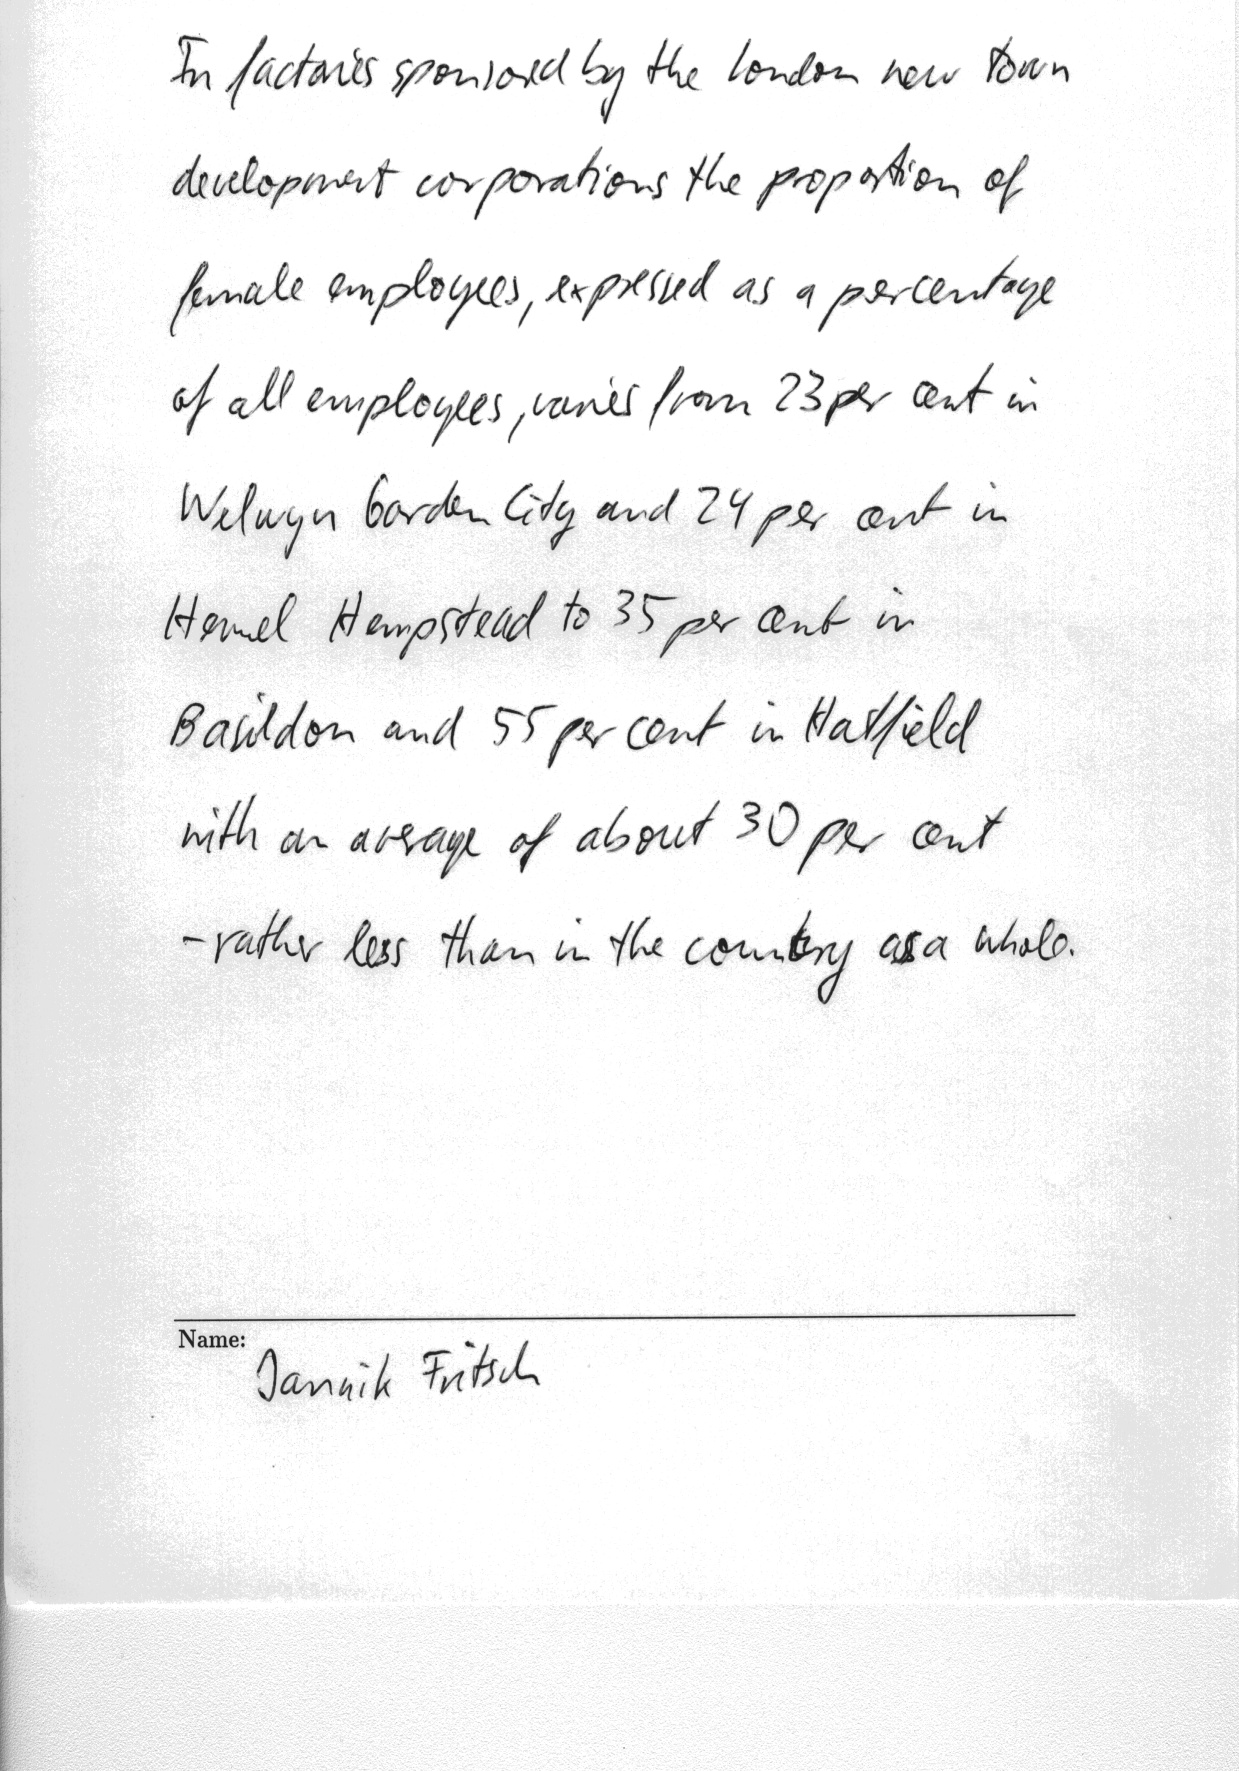 In factories sponsored by the London new town
development corporations the proportion of
female employees, expressed as a percentage
of all employees, varies from 23 per cent in
Welwyn Garden City and 24 per cent in
Hemel Hempstead to 35 per cent in
Basildon and 55 per cent in Hatfield
with an average of about 30 per cent
- rather less than in the country as a whole.
Name:
Jannik Fritsch